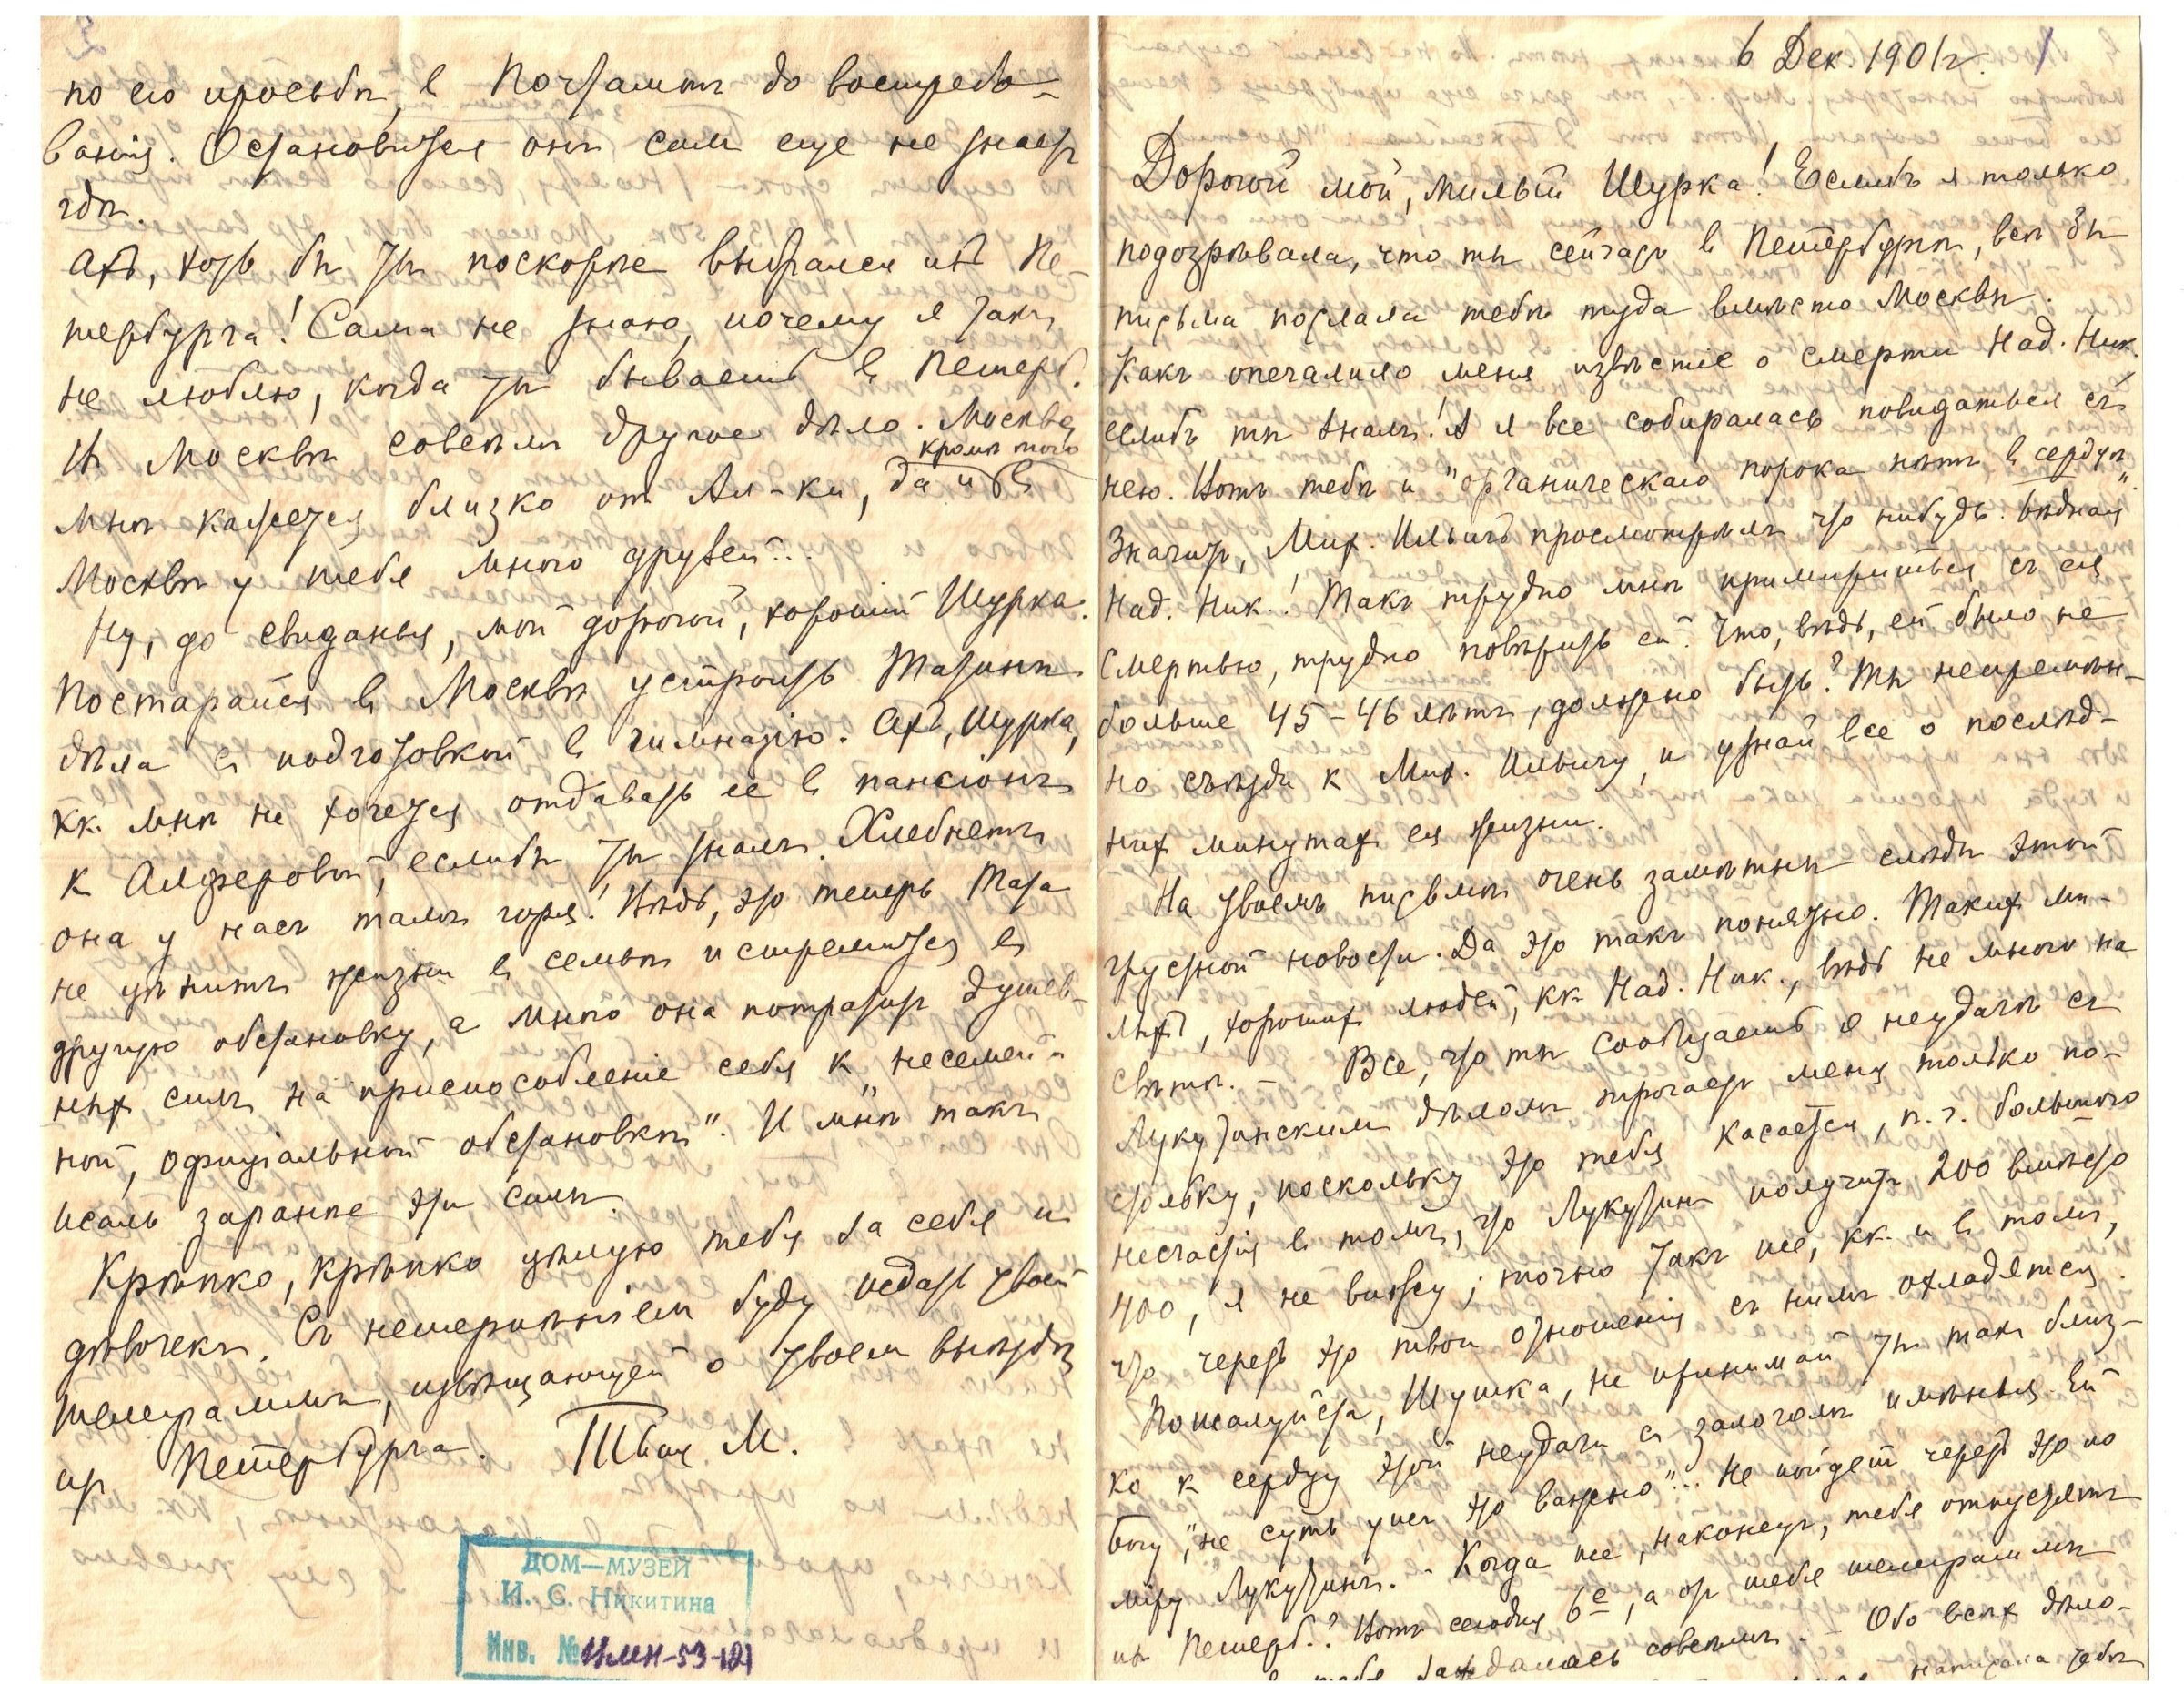 6 Дек. 1901 г.
Дорогой мой, милый Шурка! Еслибъ я только
подозрѣвала, что ты сейчасъ въ Петербургѣ, всѣ бы
письма послала тебѣ туда вмѣсто Москвы.
Какъ опечалило меня извѣстіе о смерти Над. Ник.
еслибъ ты зналъ! А я все собиралась повидаться съ
нею. Вотъ тебѣ и "органическаго порока нѣтъ въ сердцѣ".
Значитъ, Мих. Ильичъ просмотрѣлъ что нибудь. Бѣдная
Над. Ник.! Такъ трудно мнѣ примириться съ ея
смертью, трудно повѣрить ей. Что, вѣдь, ей было не
больше 45-46 лѣтъ, должно быть? Ты непремѣн-
но съѣзди к Мих. Ильичу, и узнай все о послѣд-
них минутах ея жизни.
На твоемъ письмѣ очень замѣтны слѣды этой
грустной новости. Да это такъ понятно. Таких ми-
лыхъ, хороших людей, кк. Над. Ник., вѣдь не много на
свѣтѣ. – Все, что ты сообщаешь о неудачѣ съ
Лукутинским дѣломъ трогаетъ меня только по-
стольку, поскольку это тебя касается, п. ч. большого
несчастія въ томъ, что Лукутинъ получитъ 200 вмѣсто
400, я не вижу; точно такъ же, кк. и въ томъ,
что черезъ это твои отношенія съ нимъ охладятся.
Пожалуйста, Шушка, не принимай ты такъ близ-
ко к сердцу этой неудачи съ залогомъ имѣнья. Ей
богу, "не суть уже это важно"... Не пойдетъ черезъ это по
міру Лукутинъ. – Когда же, наконецъ, тебя отпустятъ
изъ Петерб.? Вотъ сегодня 6е, а отъ тебя телеграммы
тебя заждалась совсѣмъ. – Обо всѣх дѣло-
написала тебѣ
по его просьбѣ, въ Почтамтъ до востребо-
ванія. Остановится онъ самъ еще не знаетъ
гдѣ.
Ахъ, хоть бы ты поскорѣе выбрался изъ Пе-
тербурга! Сама не знаю, почему я такъ
не люблю, когда ты бываешь въ Петерб.
Въ Москвѣ совсѣмъ другое дѣло. Москва
кромѣ того
мнѣ кажется близко от Ал-ки, да и въ
Москвѣ у тебя много друзей...
Ну, до свиданья, мой дорогой, хороший Шурка.
Постарайся въ Москвѣ устроить Тазины
дѣла съ подготовкой въ гимназію. Ахъ, Шурка,
кк. мнѣ не хочется отдавать ее въ пансіонъ
к Алферовой, еслибы ты зналъ. Хлебнетъ
она у насъ тамъ горя! Вѣдь, это теперь Таза
не цѣнитъ жизни въ семьѣ и стремится въ
другую обстановку, а много она потратитъ душев-
ных силъ на приспособленіе себя к "несемей-
ной, официальной обстановкѣ". И мнѣ такъ
жаль заранѣе эти силы.
Крѣпко, крѣпко цѣлую тебя за себя и
дѣвочекъ. Съ нетерпѣніем буду ждать твоей
телеграммы, извѣщающей о твоем выѣздѣ
из Петербурга. Твоя М.
ДОМ—МУЗЕЙ
И. С. Никитина
Инв. № НМН-53-121